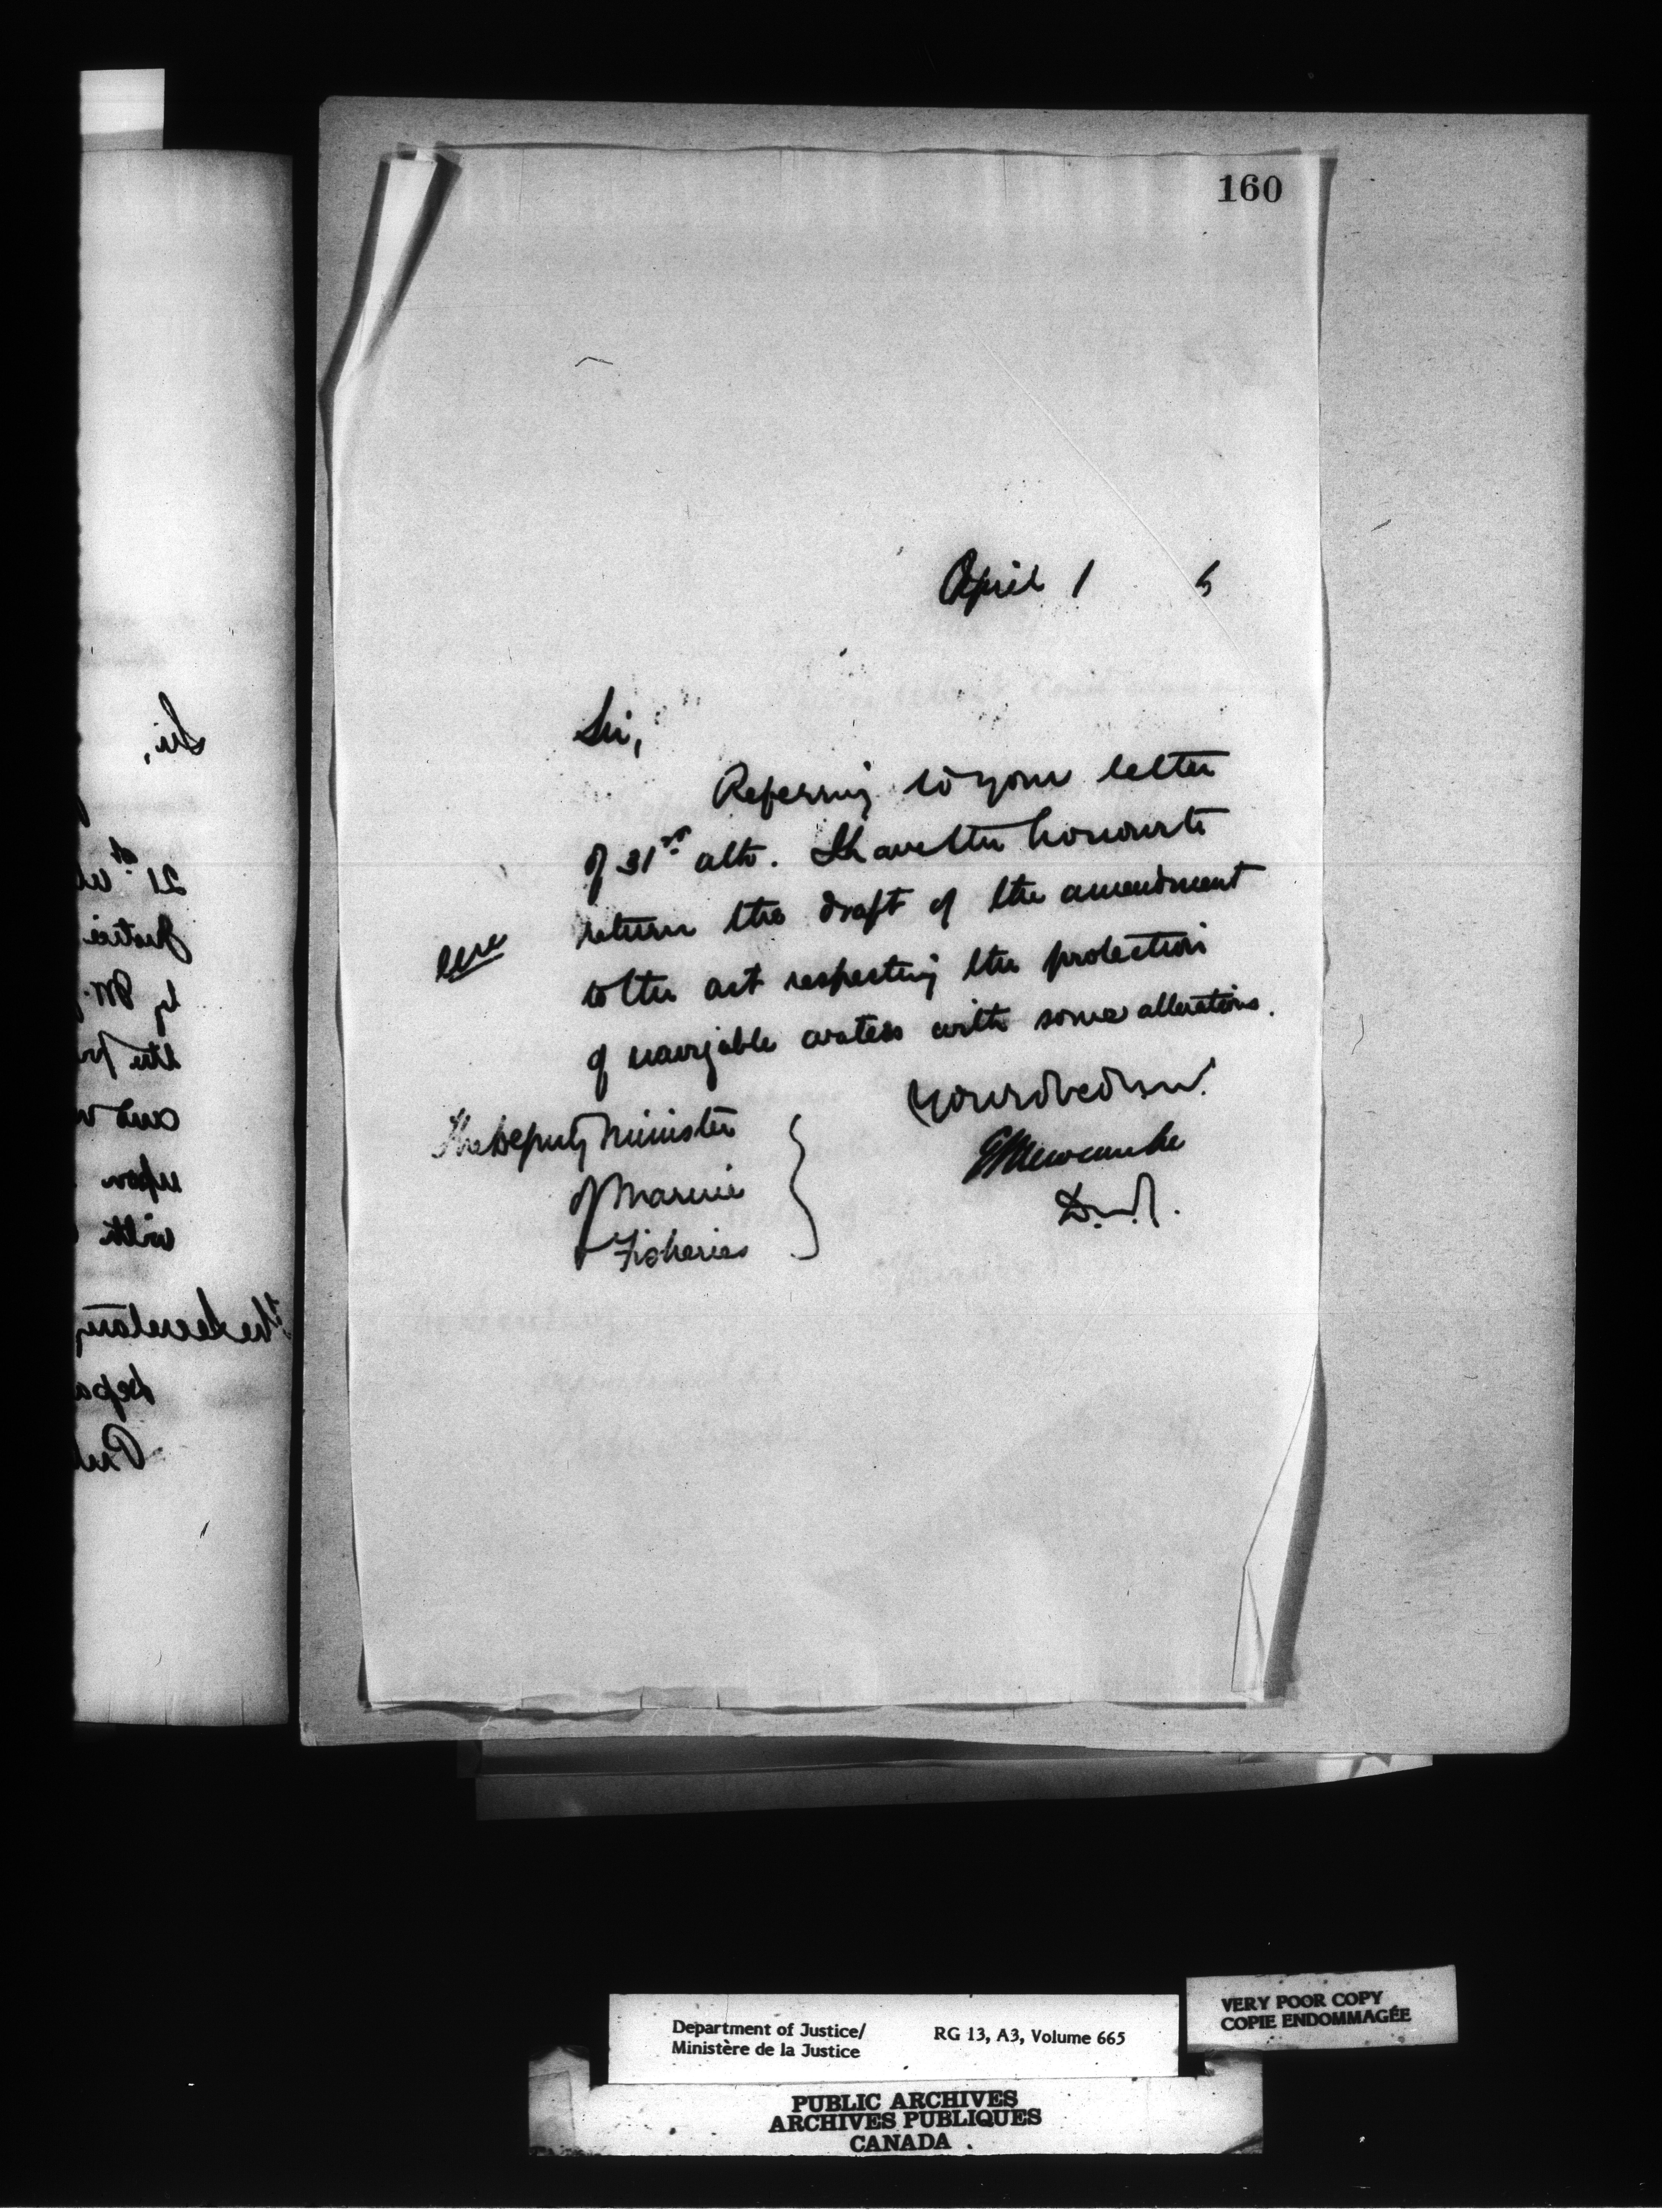 160
April 1 5
Sir,
Referring to your letter
of 31st ulto. I have the honour to
return the draft of the amendment
to the act respecting the protection
of navigable waters with some alterations.
Your obed serv.
The Deputy Minister
of Marine
Fisheries
E L Newcombe
D.M.J.
Sir,
21st
Justice
by M.
the pr
and
upon
with
The Secretary
Depa
Pub
Department of Justice/
Ministère de la Justice
RG 13, A3, Volume 665
VERY POOR COPY
COPIE ENDOMMAGÉE
PUBLIC ARCHIVES
ARCHIVES PUBLIQUES
CANADA